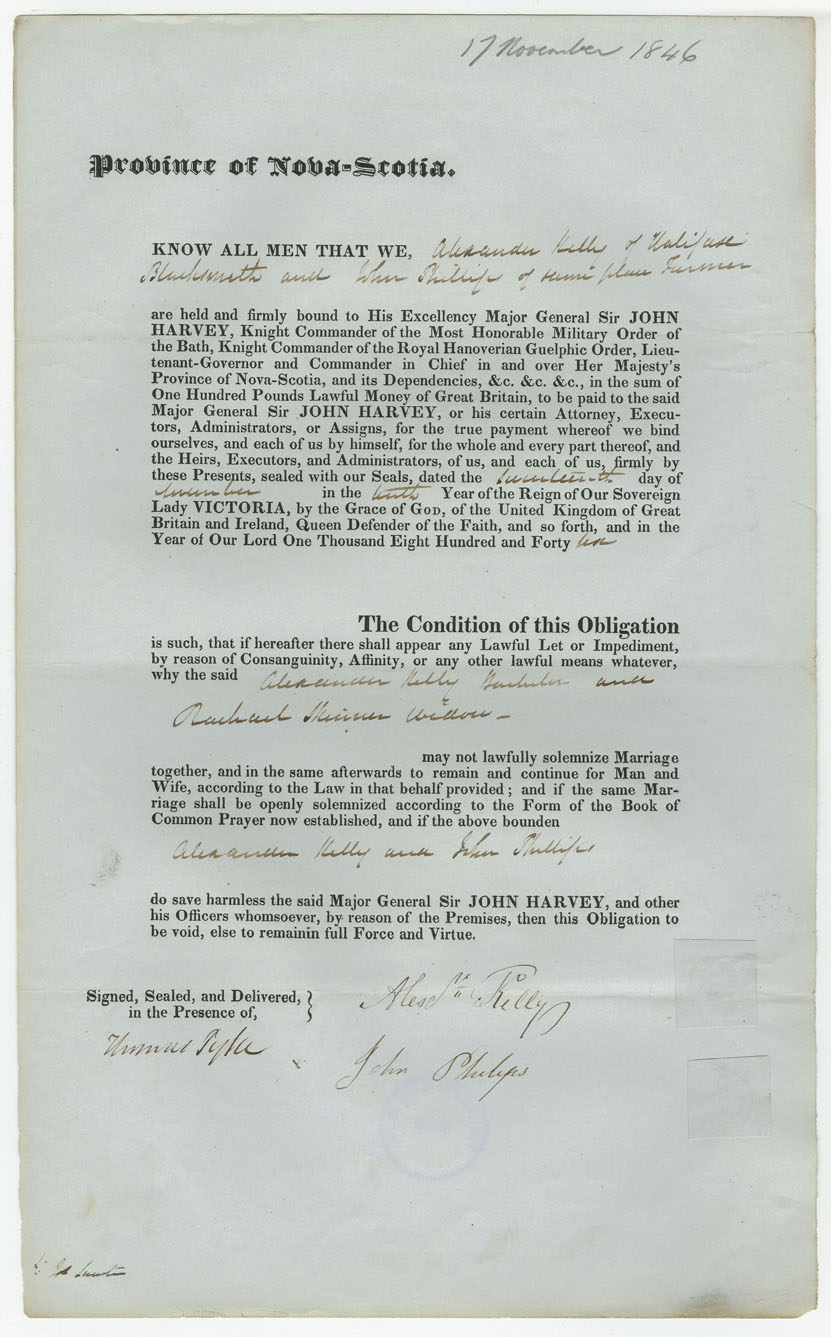 17 November 1846
Province of Nova-Scotia.
KNOW ALL MEN THAT WE, Alexander Kelly of Halifax
Blacksmith and John Phillips of same place Farmer
are held and firmly bound to His Excellency Major General Sir JOHN
HARVEY, Knight Commander of the Most Honorable Military Order of
the Bath, Knight Commander of the Royal Hanoverian Guelphic Order, Lieu-
tenant-Governor and Commander in Chief in and over Her Majesty's
Province of Nova-Scotia, and its Dependencies, &c. &c. &c., in the sum of
One Hundred Pounds Lawful Money of Great Britain, to be paid to the said
Major General Sir JOHN HARVEY, or his certain Attorney, Execu-
tors, Administrators, or Assigns, for the true payment whereof we bind
ourselves, and each of us by himself, for the whole and every part thereof, and
the Heirs, Executors, and Administrators, of us, and each of us, firmly by
these Presents, sealed with our Seals, dated the Seventeenth day of
November in the tenth Year of the Reign of Our Sovereign
Lady VICTORIA, by the Grace of GOD, of the United Kingdom of Great
Britain and Ireland, Queen Defender of the Faith, and so forth, and in the
Year of Our Lord One Thousand Eight Hundred and Forty six
The Condition of this Obligation
is such, that if hereafter there shall appear any Lawful Let or Impediment,
by reason of Consanguinity, Affinity, or any other lawful means whatever,
why the said Alexander Kelly Bachelor and
Rachael Skinner Widow -
may not lawfully solemnize Marriage
together, and in the same afterwards to remain and continue for Man and
Wife, according to the Law in that behalf provided ; and if the same Mar-
riage shall be openly solemnized according to the Form of the Book of
Common Prayer now established, and if the above bounden
Alexander Kelly and John Phillips
do save harmless the said Major General Sir JOHN HARVEY, and other
his Officers whomsoever, by reason of the Premises, then this Obligation to
be void, else to remainin full Force and Virtue.
Signed, Sealed, and Delivered, }
in the Presence of,
Alexdr Kelly
Thomas
John Philips